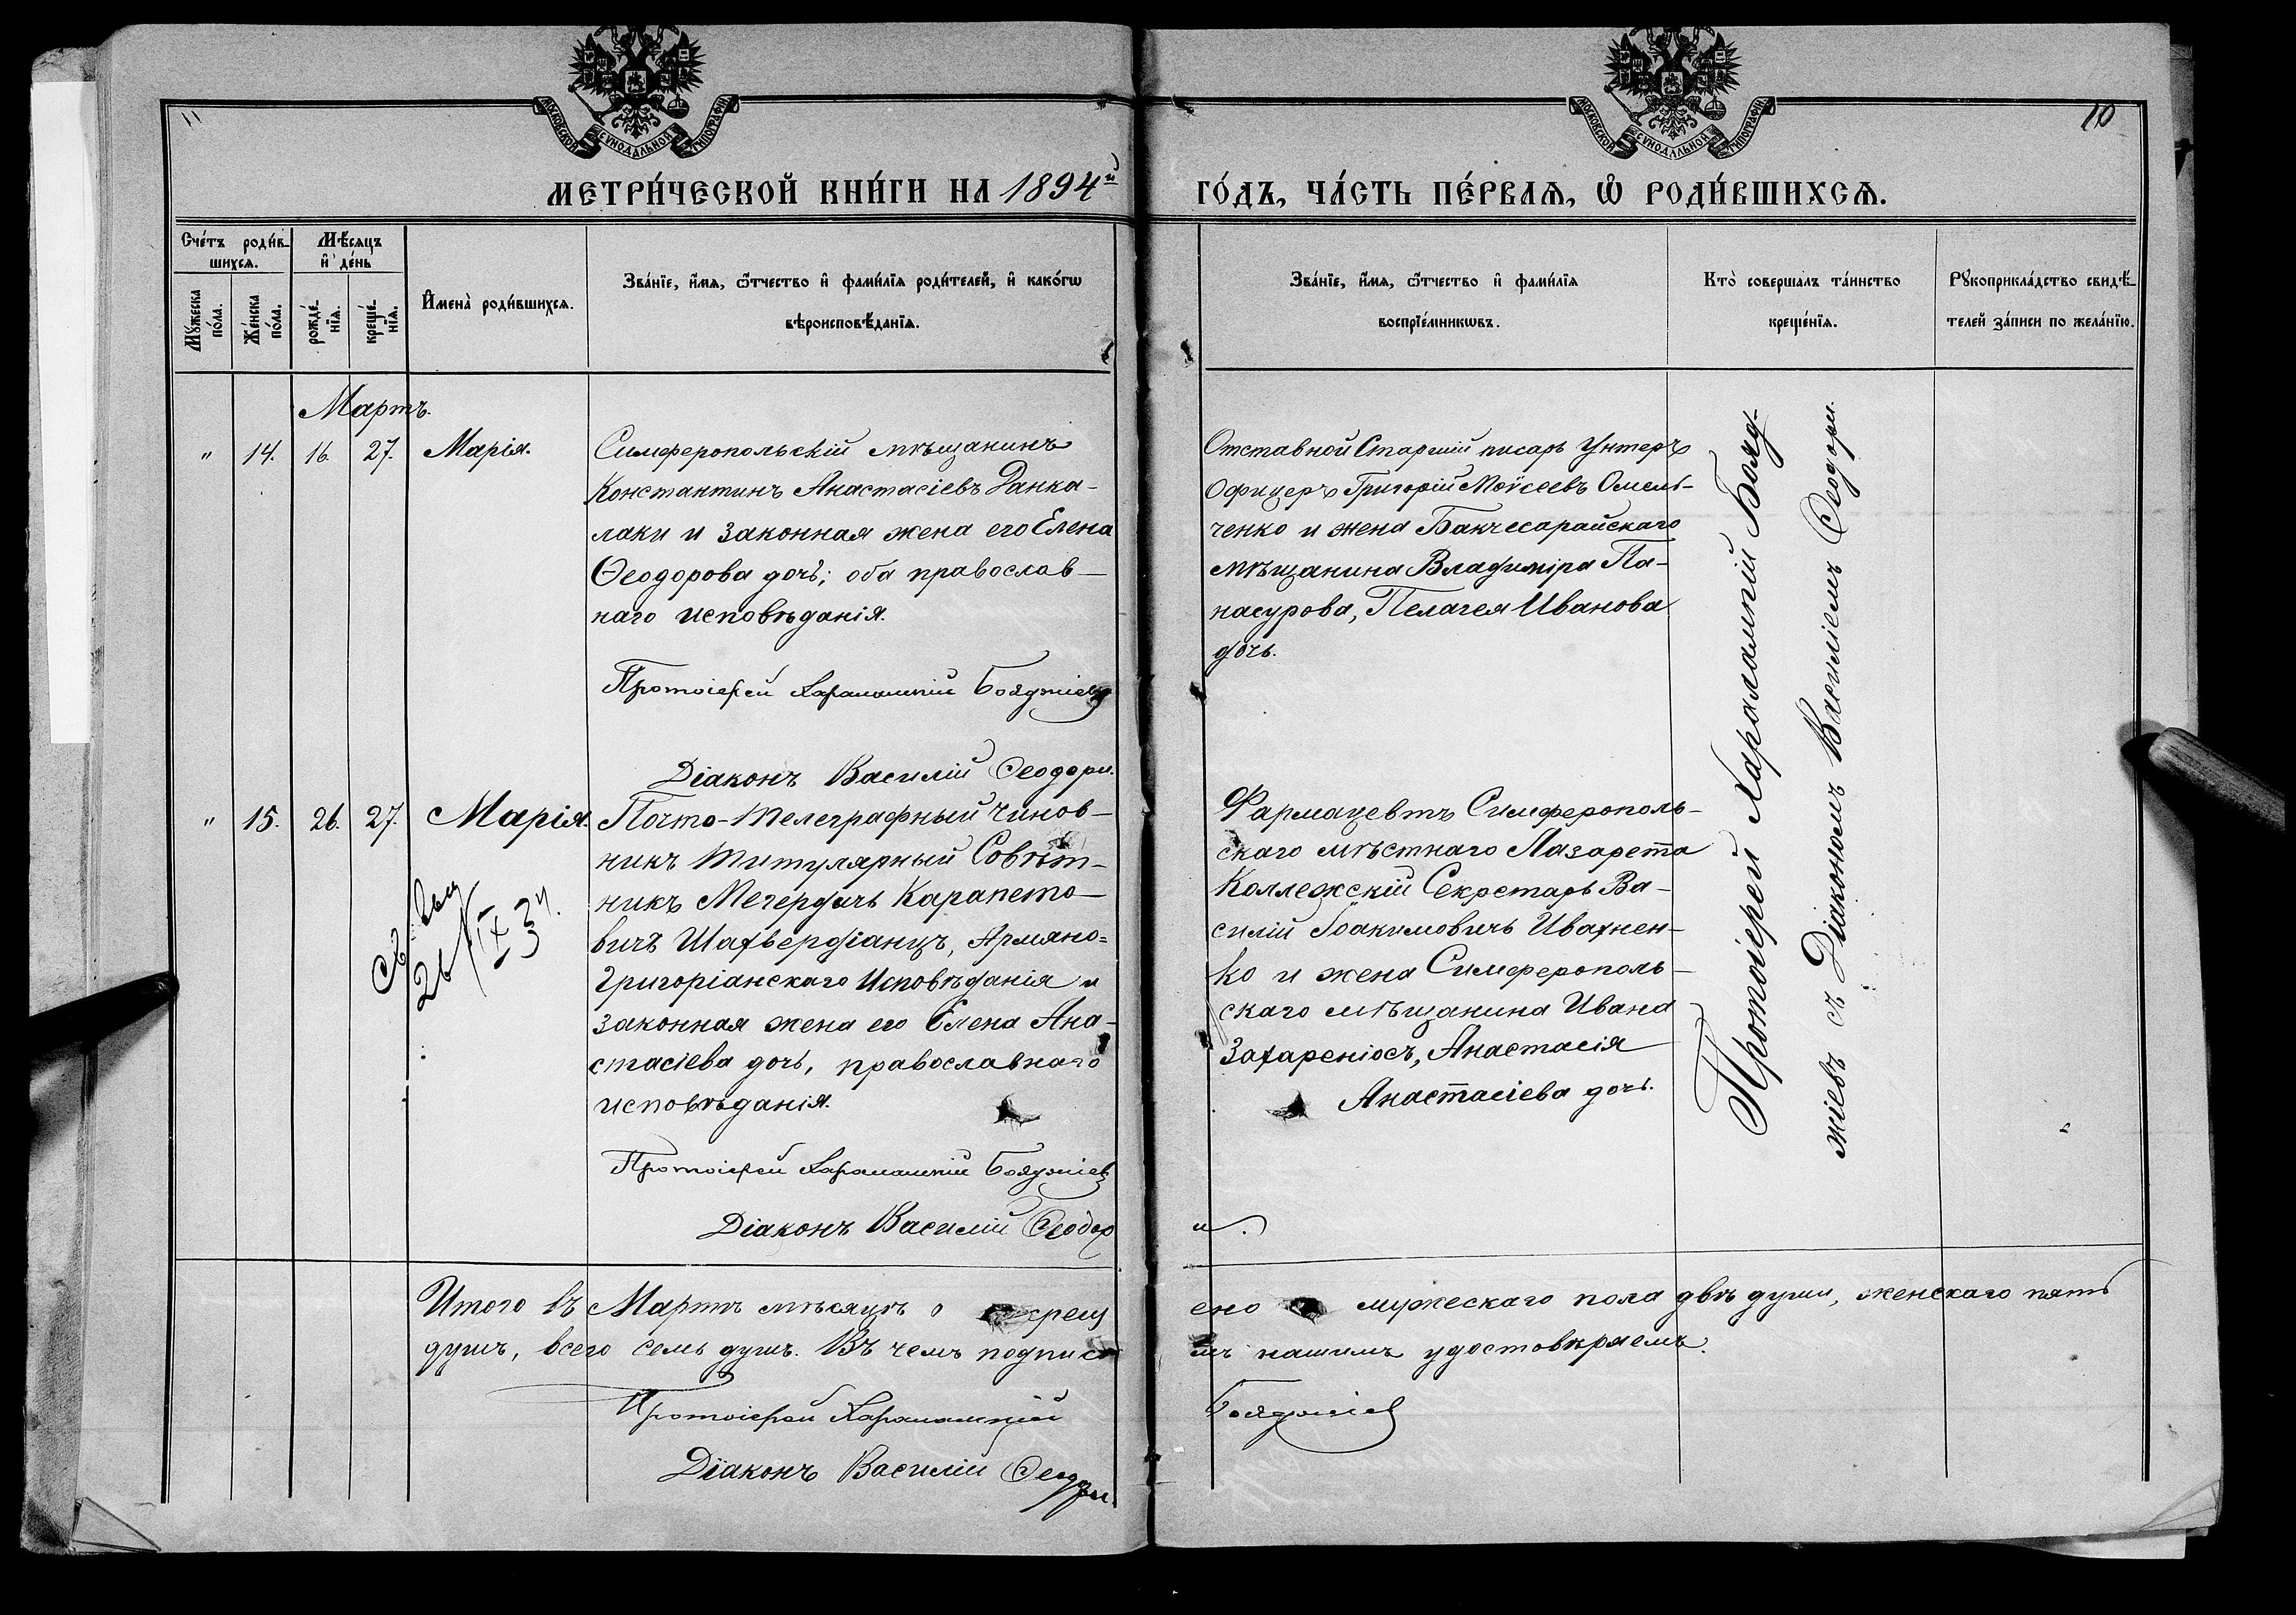 11
10
МОСКОВСКОЙ СѴНОДАЛЬНОЙ ТИПОГРАФІИ
МОСКОВСКОЙ СѴНОДАЛЬНОЙ ТИПОГРАФІИ
МЕТРИ́ЧЕСКОЙ КНИ́ГИ НА 1894й ГО́ДЪ, ЧА́СТЬ ПЕ́РВАѦ, Ѡ҆ РОДИ́ВШИХСѦ.
Счетъ роди́в-
шихсѧ.
Мѣ́сяцъ
и҆ де́нь
Мꙋ́жеска
по́ла.
Же́нска
по́ла.
рожде́-
нїѧ.
креще́-
нїѧ.
И҆мена̀ роди́вшихсѧ.
Зва́нїе, и҆́мѧ, ѻ҆́тчество и҆ фами́лїѧ роди́телей, и҆ како́гѡ
вѣроисповѣ́данїѧ.
Зва́нїе, и҆́мѧ, ѻ҆́тчество и҆ фами́лїѧ
воспрїе́мникѡвъ.
Кто̀ соверша́лъ та́инство
креще́нїѧ.
Рꙋкоприкла́дство свидѣ́-
телей за́писи по жела́нїю.
Мартъ.
" 14. 16. 27. Марія.
Симферопольскій мѣщанинъ
Константинъ Анастасіевъ Данка-
лаки и законная жена его Елена
Ѳеодорова дочь; оба православ-
наго исповѣданія.
Протоіерей Харалампій Бояджіевъ
Діаконъ Василій Ѳеодори.
Отставной Старшій писарь Унтеръ
Офицеръ Григорій Моѵсеевъ Омель-
ченко и жена Бакчесарайскаго
мѣщанина Владиміра Па-
насурова, Пелагея Иванова
дочь.
Протоіерей Харалампій Бояд-
жіевъ съ Діакономъ Василіемъ Ѳеодори.
" 15. 26. 27. Марія.
26/IX 34.
Почто-телеграфный Чинов-
никъ Титулярный Совѣт-
никъ Мегердичъ Карапето-
вичъ Шахвердіанцъ, Армяно-
Григоріанскаго Исповѣданія и
законная жена его Елена Ана-
стасіева дочь, православнаго
исповѣданія.
Протоіерей Харалампій Бояджіевъ
Діаконъ Василій Ѳеодори.
Фармацевтъ Симферополь-
скаго мѣстнаго Лазарета
Коллежскій Секретарь Ва-
силій Іоакимовичъ Ивахнен-
ко и жена Симферополь-
скаго мѣщанина Ивана
Захареніосъ, Анастасія
Анастасіева дочь.
Итого въ Мартѣ мѣсяцѣ крещено мужескаго пола двѣ души, женскаго пять
душъ, всего семь душъ. Въ чемъ подписомъ нашимъ удостовѣряемъ.
Протоіерей Харалампій Бояджіев
Діаконъ Василій Ѳеодори.